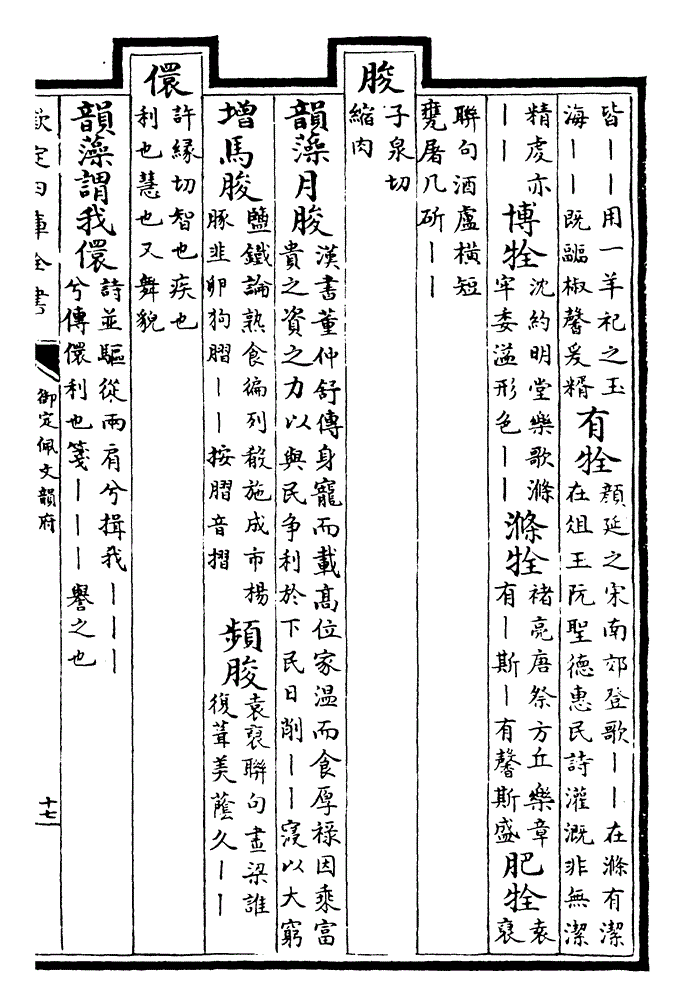 皆——用一羊祀之玉
海——既䤋椒馨爰糈
有牷
顔延之宋南郊登歌——在滌有潔
在俎王阮聖德惠民詩灌溉非無潔
精虔亦
——
博牷
沈約明堂樂歌滌
牢委溢形色——
滌牷
褚亮唐祭方丘樂章
有—斯—有馨斯盛
肥牷
袁裒
聯句酒盧横短
甕屠几斫——
朘
子泉切
縮肉
韻藻月朘
漢書董仲舒傳身寵而載髙位家温而食厚禄因乘富
貴之資之力以與民争利於下民日削——寖以大窮
增馬朘
鹽鐵論熟食徧列殽施成市楊
豚韭卵狗䐑——按䐑音摺
頻朘
袁裒聯句畫梁誰
復葺美蔭久——
儇
許縁切智也疾也
利也慧也又舞貌
韻藻謂我儇
詩並驅從兩肩兮揖我———
兮傳儇利也箋———譽之也
欽定四庫全書
御定佩文韻府
十七